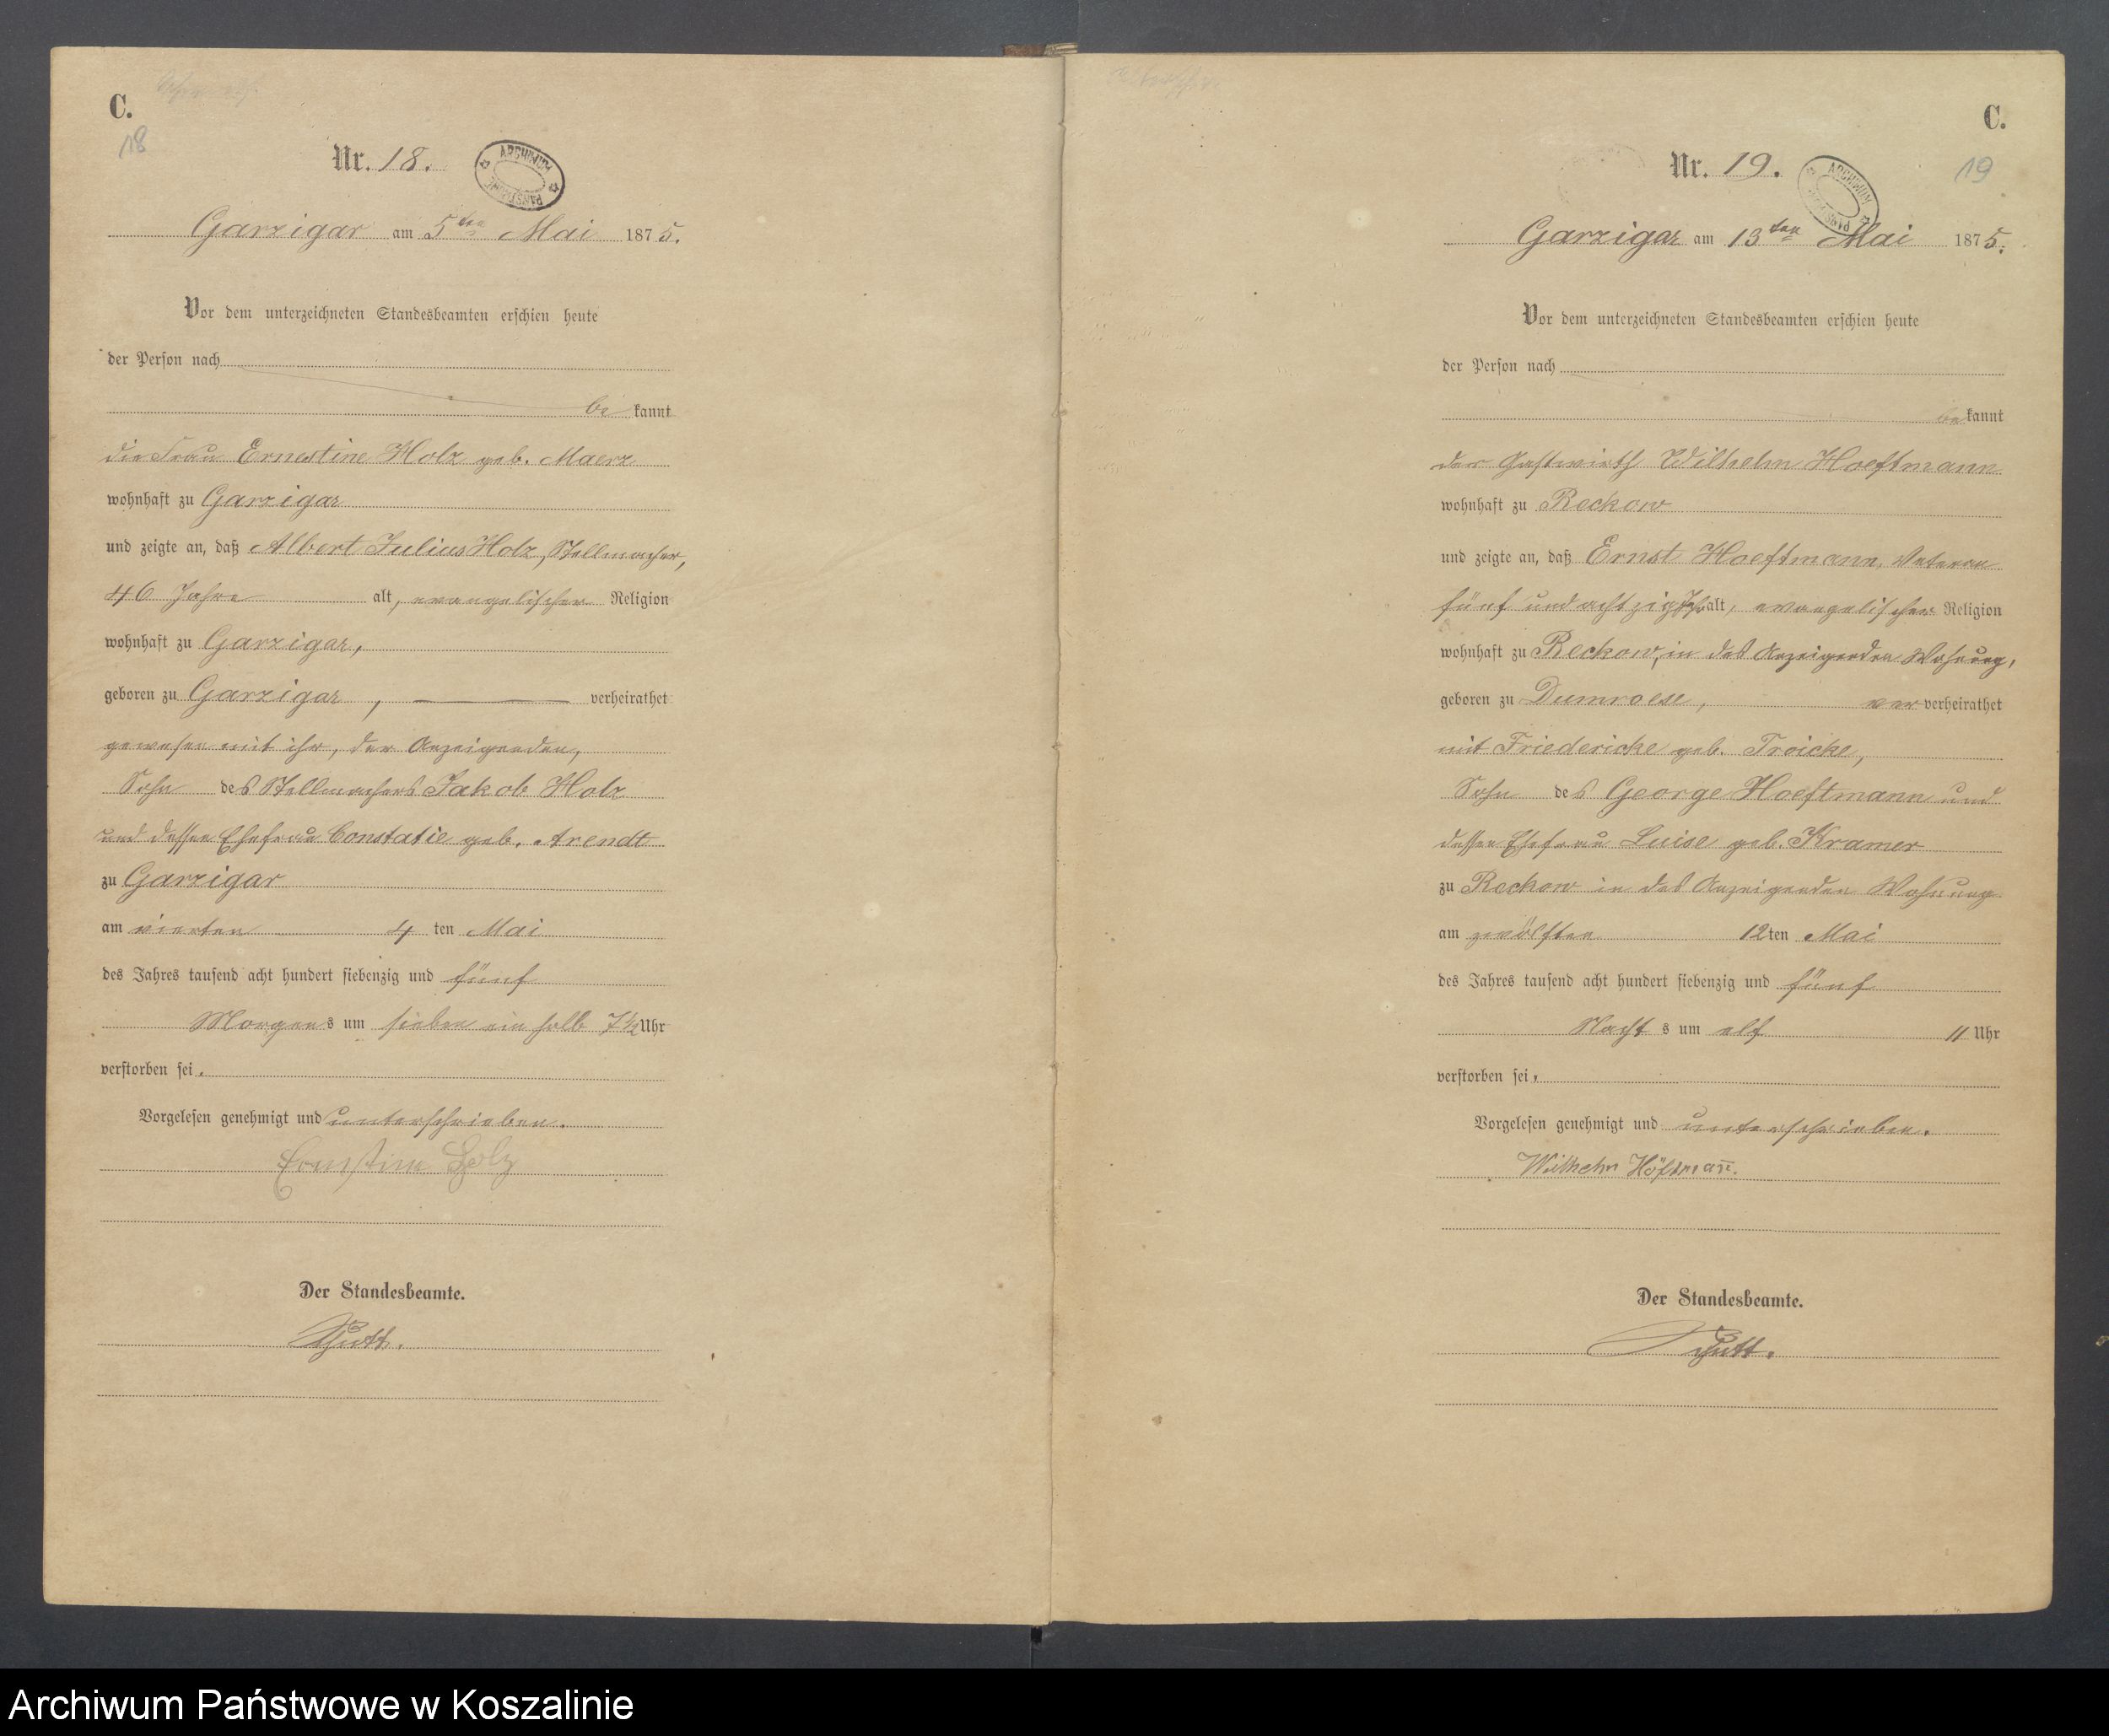 C.
18
Nr. 18.
ARCHIWUM PAŃSTWOWE
Garzigar am 5ten Mai 1875.
Vor dem unterzeichneten Standesbeamten erschien heute
der Person nach
bekannt
die Frau Ernestine Holz geb. Maerz
wohnhaft zu Garzigar
und zeigte an, daß Albert Julius Holz, Stellmacher,
46 Jahre alt, evangelischer Religion
wohnhaft zu Garzigar,
geboren zu Garzigar, verheirathet
gewesen mit ihr, der Anzeigenden,
Sohn des Stellmachers Jakob Holz
und dessen Ehefrau Constatie geb. Arendt
zu Garzigar
am vierten 4 ten Mai
des Jahres tausend acht hundert siebenzig und fünf
Morgens um sieben ein halb 7½ Uhr
verstorben sei.
Vorgelesen genehmigt und unterschrieben.
Ernstine Holz
Der Standesbeamte.
Schutt.
C.
19
Nr. 19.
ARCHIWUM PAŃSTWOWE
Garzigar am 13ten Mai 1875.
Vor dem unterzeichneten Standesbeamten erschien heute
der Person nach
bekannt
der Gastwirth Wilhelm Hoeftmann
wohnhaft zu Reckow
und zeigte an, daß Ernst Hoeftmann, Veteran
fünf und achtzig Jahr alt, evangelischer Religion
wohnhaft zu Reckow, in des Anzeigenden Wohnung,
geboren zu Dumroese, war verheirathet
mit Friedericke geb. Troicke,
Sohn des George Hoeftmann und
dessen Ehefrau Luise geb. Kramer
zu Reckow in des Anzeigenden Wohnung
am zwölften 12ten Mai
des Jahres tausend acht hundert siebenzig und fünf
Nachts um elf 11 Uhr
verstorben sei.
Vorgelesen genehmigt und unterschrieben.
Wilhelm Höftmañ.
Der Standesbeamte.
Schutt.
Archiwum Państwowe w Koszalinie